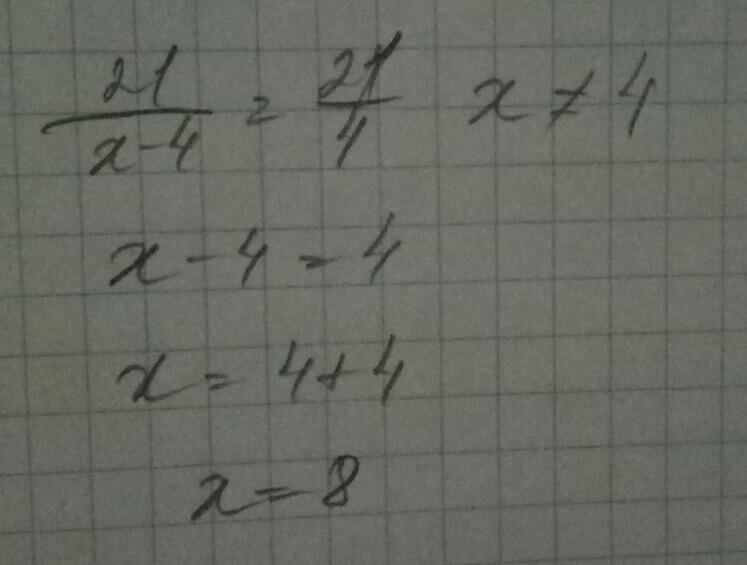 21/(x-4) = 21/4 x ≠ 4
x - 4 = 4
x = 4 + 4
x = 8